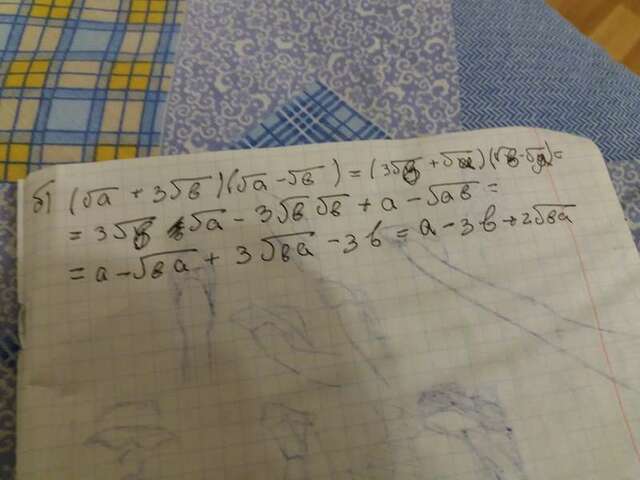 б) (√a + 3√в)(√a - √в) = (3√в + √a)(√в - √a) =
= 3√в √a - 3√в √в + a - √aв =
= a - √вa + 3√вa - 3в = a - 3в + 2√вa